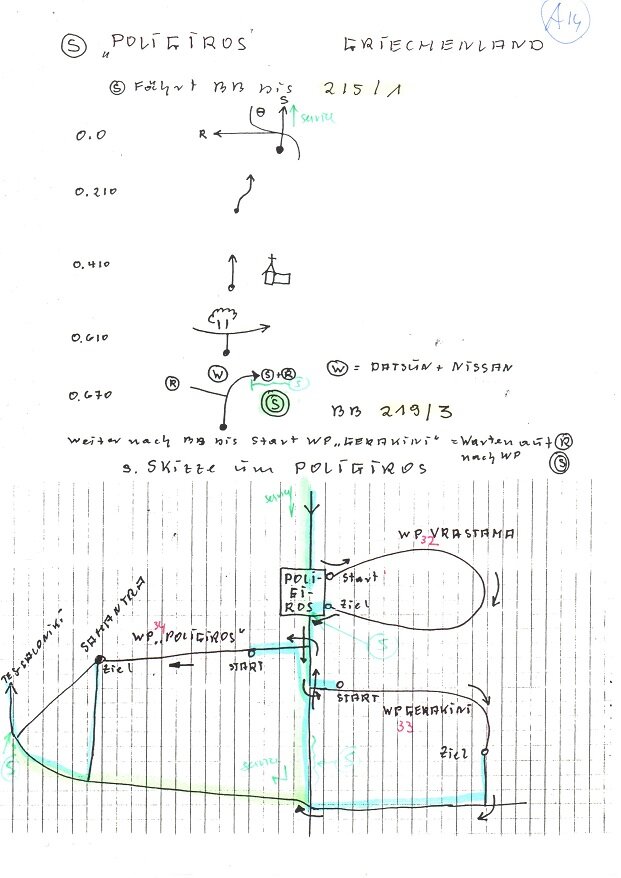 A14
Ⓢ „POLIGIROS" GRIECHENLAND
Ⓢ Fährt BB bis 215/1
0.0
R S service
0.210
0.410
0.610
0.670
Ⓡ Ⓦ Ⓢ+Ⓡ Ⓢ
Ⓢ
Ⓦ = DATSUN + NISSAN
BB 219/3
weiter nach BB bis Start WP „GERAKINI" = Warten auf Ⓡ
nach WP Ⓢ
s. SKizze um POLIGIROS
service
WP VRASTAMA
32
POLI-
GI-
ROS
Start
Ziel
Ⓢ
TESSALONIKI
SAMANTRA
WP „POLIGIROS"
34
Ziel
START
START
WP GERAKINI
33
Ziel
service
S
S